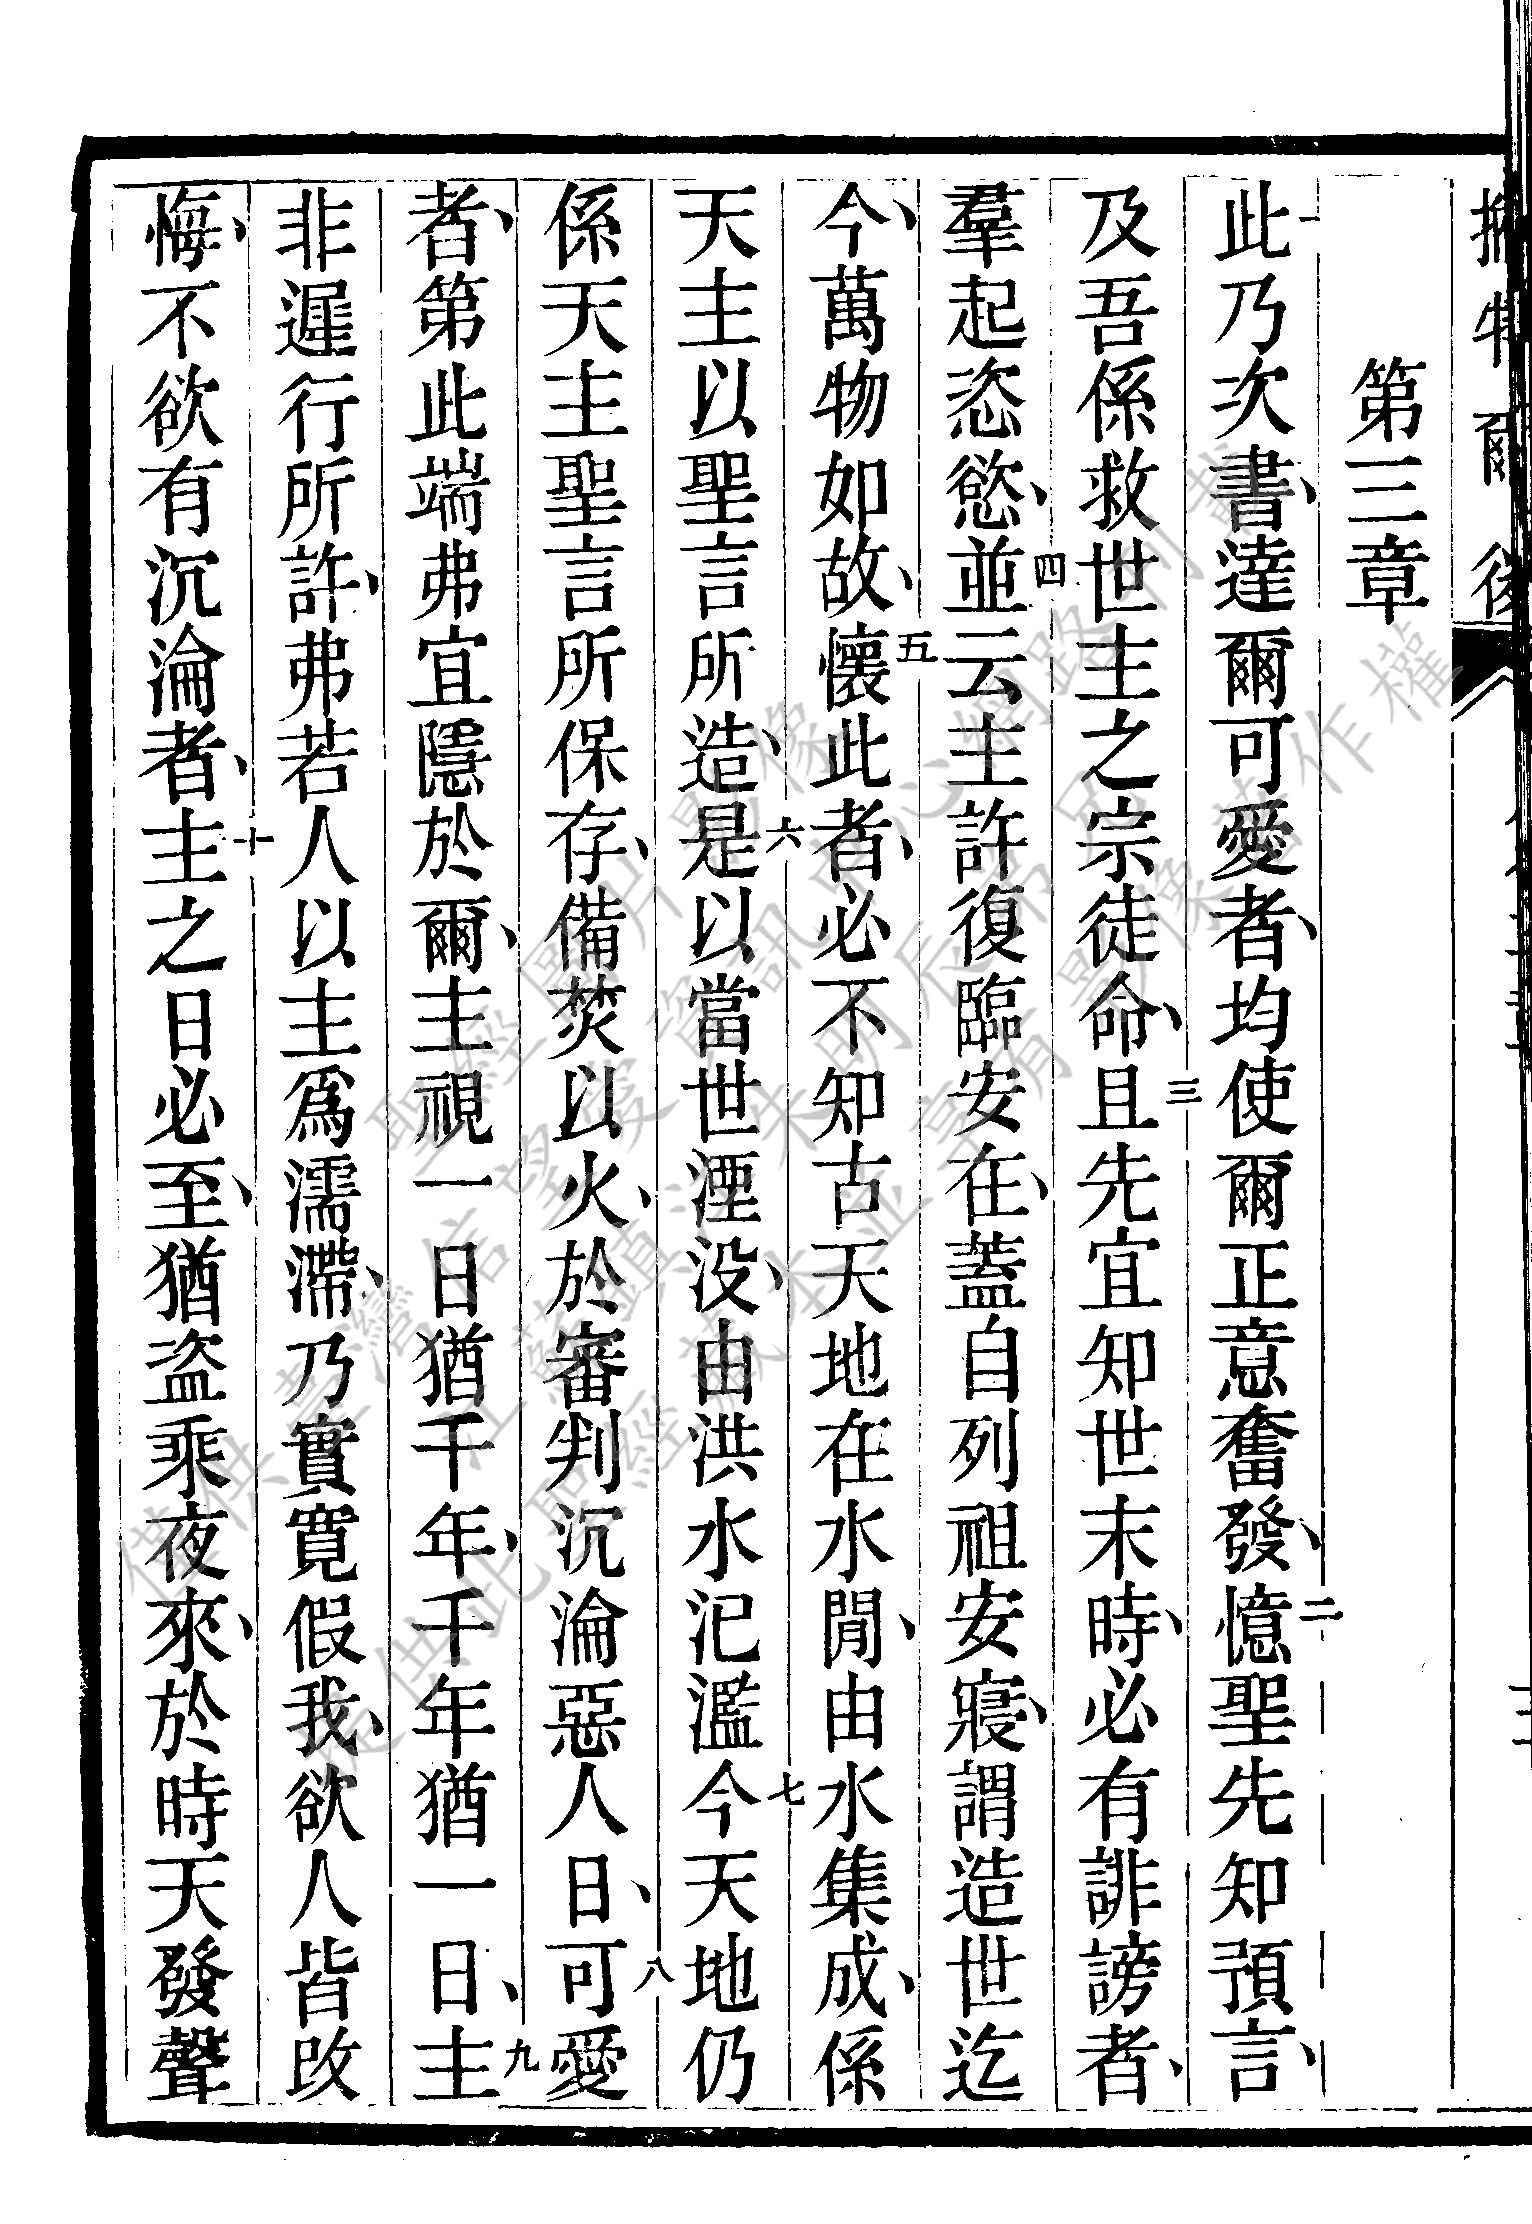 第三章
一此乃次書、達爾可愛者、均使爾正意奮發、二憶聖先知預言、
及吾係救世主之宗徒命、三且先宜知世末時、必有誹謗者、
羣起恣慾、四並云主許復臨安在、蓋自列祖安寢、謂造世迄
今、萬物如故、五懷此者、必不知古天地在水閒、由水集成、係
天主以聖言所造、六是以當世湮没、由洪水汜濫、七今天地仍
係天主聖言所保存、備焚以火、於審判沉淪惡人日、八可愛
者、第此端弗宜隱於爾、主視一日猶千年、千年猶一日、九主
非遲行所許、弗若人以主爲濡滯、乃實寬假我、欲人皆改
悔、不欲有沉淪者、十主之日必至、猶盜乘夜來、於時天發聲